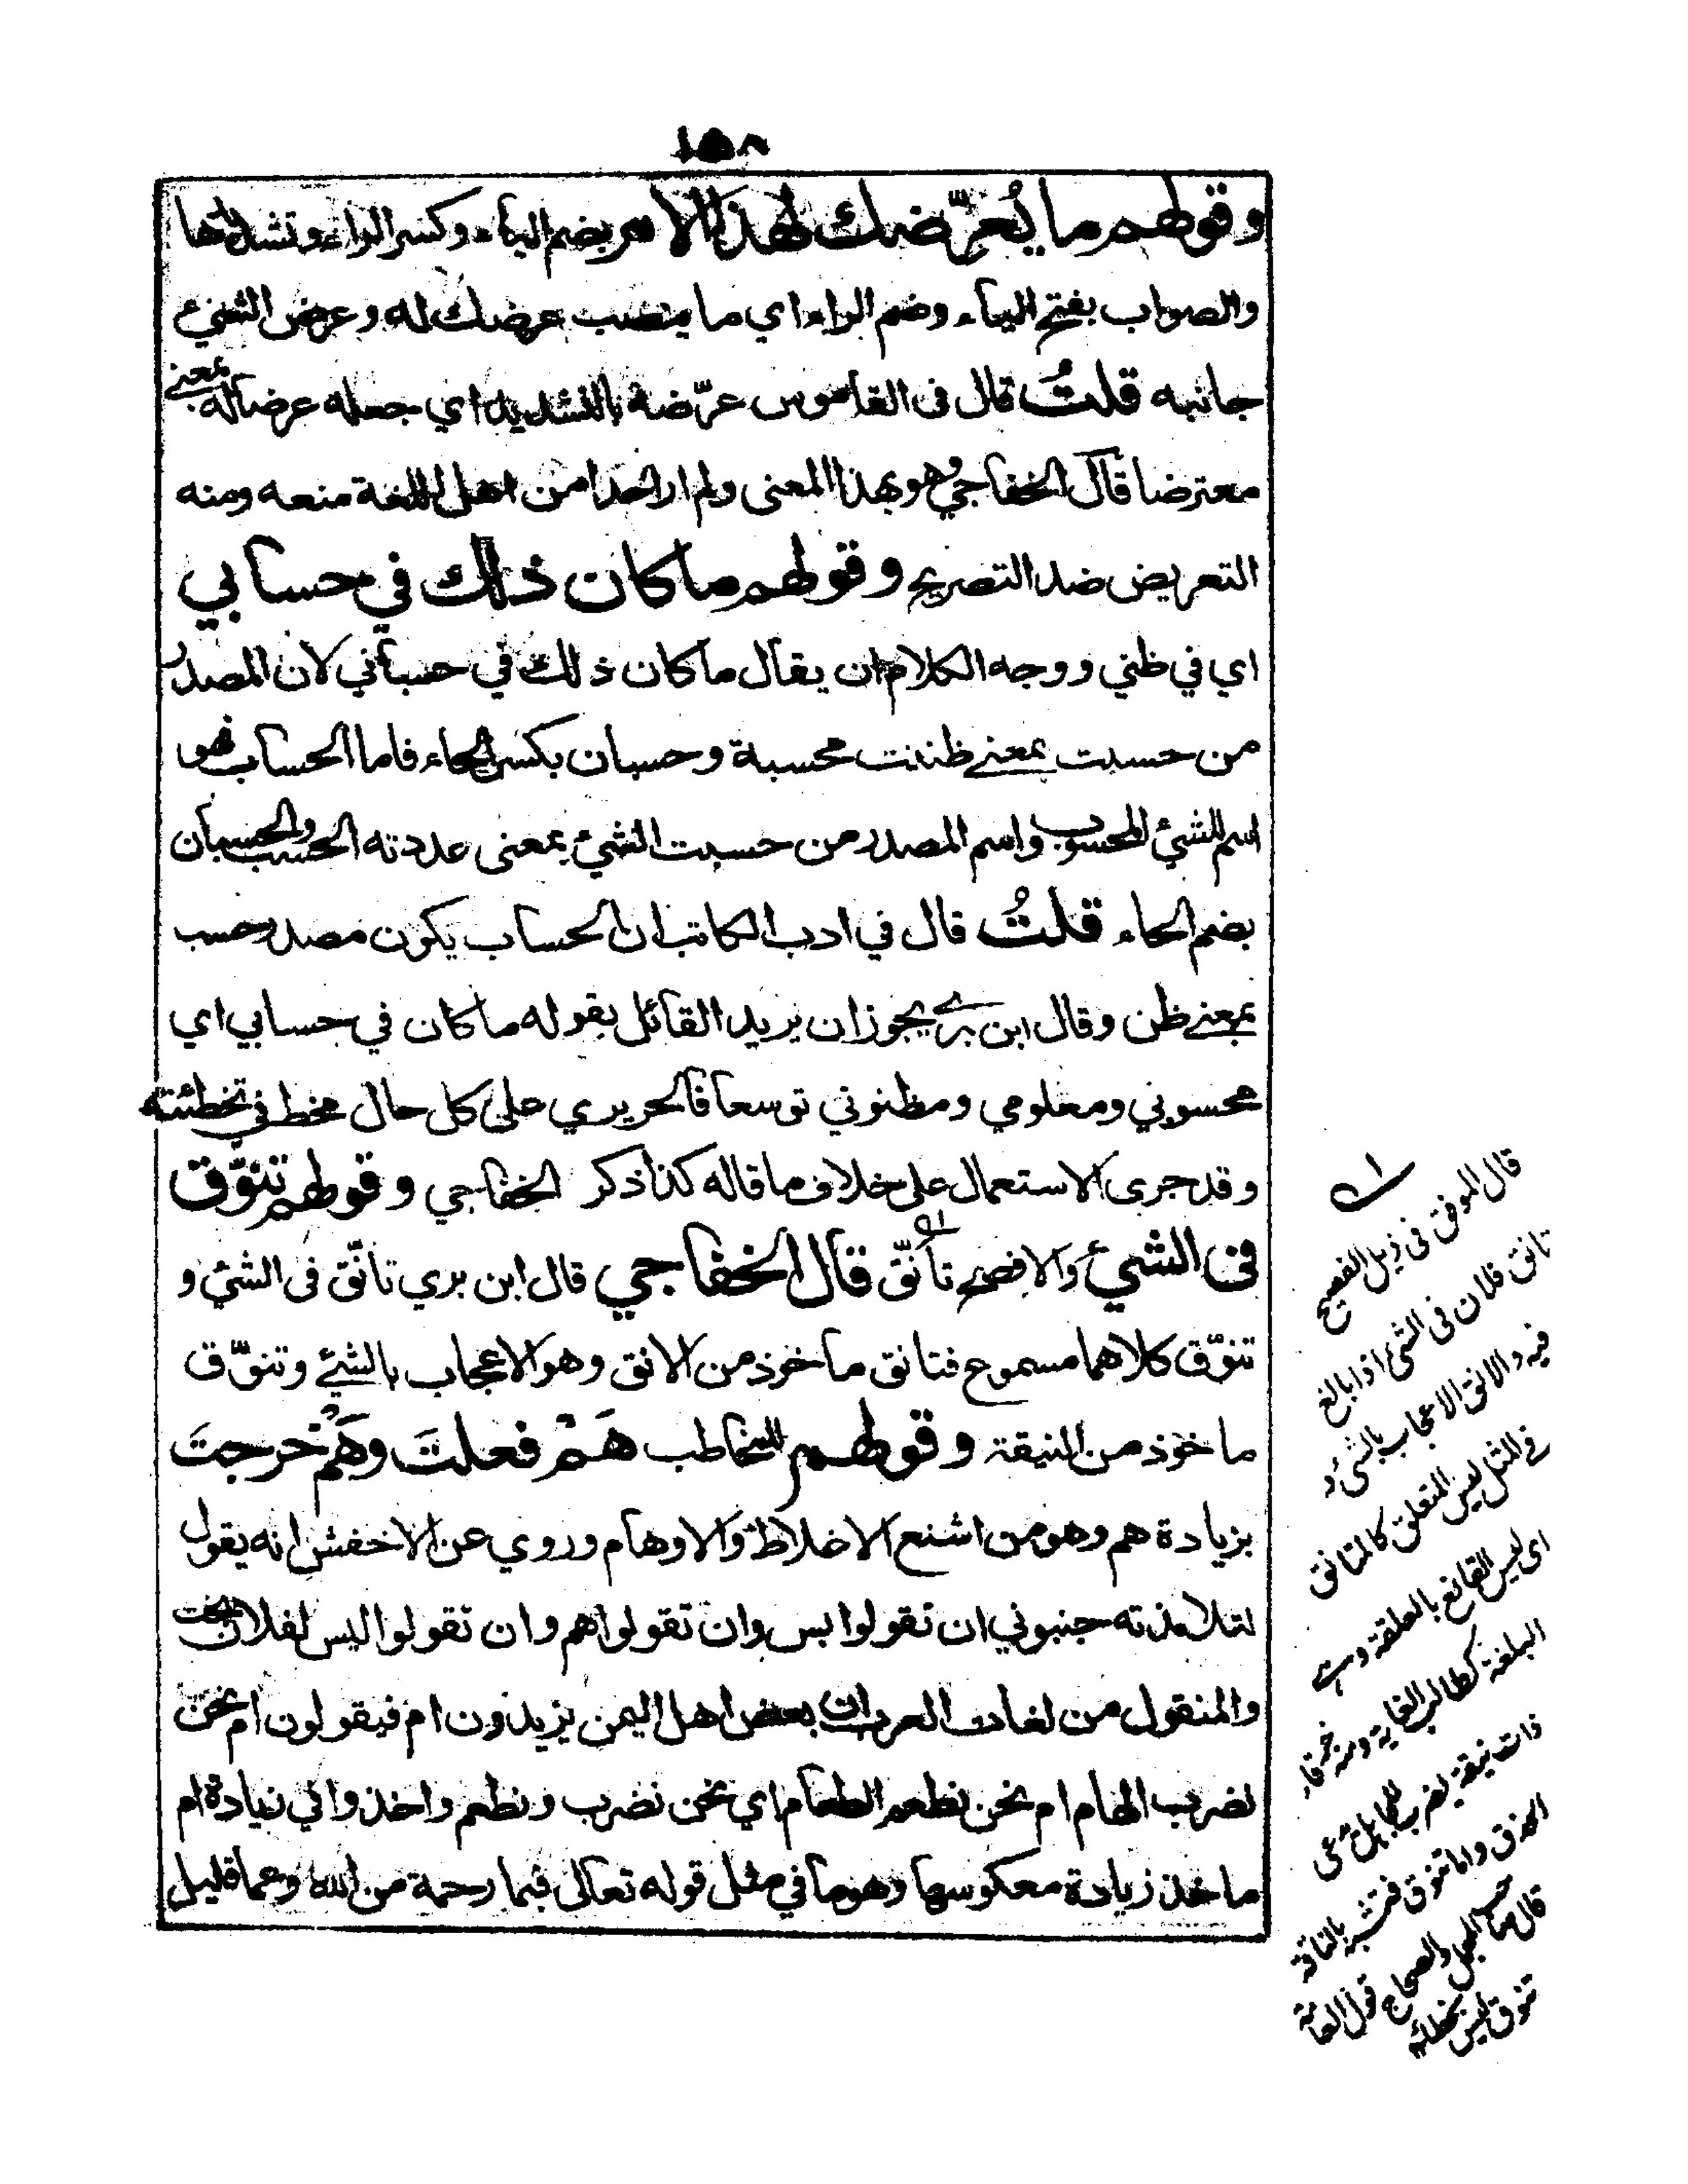 ١٥٨
وقولهم ما يُعرّضك لهذا الامر بضم الياء وكسر الراء وتشديدها
والصواب بفتح الياء وضم الراء اي ما ينصب عرضك له وعرض الشيئ
جانبه قلتُ قال فى القاموس عرّضه بالتشديد اي جعله عرضا له بمعنے
معترضا قال الخفاجي وهو بهذا المعنى ولم ار احدا من اهل اللغة منعه ومنه
التعريض ضد التصريح وقولهم ما كان ذلك في حسابي
اي في ظني ووجه الكلام ان يقال ما كان ذلك في حسباني لان المصدر
من حسبت بمعنے ظننت محسبة وحسبان بكسر الحاء فاما الحساب فهو
اسم للشيئ المحسوب واسم المصدر من حسبت الشيئ بمعنى عددته الحسب والحسبان
بضم الحاء قلتُ قال في ادب الكاتب ان الحساب يكون مصدر حسب
بمعنے ظن وقال ابن برے يجوز ان يريد القائل بقوله ما كان في حسابي اي
محسوبي ومعلومي ومظنوني توسعا فالحريري على كل حال مخط في تخطئته
وقد جرى الاستعمال على خلاف ما قاله كذا ذكر الخفاجي وقولهم تنوّق
فى الشيئ والافصح تأنّق قال الخفاجي قال ابن بري تانّق فى الشيئ و
تنوّق كلاهما مسموع فتانق ماخوذ من الانق وهو الاعجاب بالشيئ وتنوّق
ماخوذ من النيقة وقولهم للمخاطب هَمْ فعلتَ وهَمْ خرجتَ
بزيادة هم وهو من اشنع الاغلاط والاوهام وروي عن الاخفش انه يقول
لتلامذته جنبوني ان تقولوا بس وان تقولوا هم وان تقولوا ليس لفلان بخت
والمنقول من لغات العرب ان بعض اهل اليمن يزيدون ام فيقولون ام نحن
نضرب الهام ام نحن نطعم الطعام اي نحن نضرب ونطعم واخذوا في زيادة ام
ماخذ زيادة معكوسها وهو ما في مثل قوله تعالى فبما رحمة من الله وعما قليل
قال الموفق فى ذيل الفصيح
تانق فلان فى الشئ اذا بالغ
فيه والانق الاعجاب بالشئ و
فے المثل ليس المتعلق كالمتانق
اى ليس القانع بالعلقة وهے
البلغة كطالب الغاية ومنه خرقاء
ذات نيقة يضرب للجاهل يدعى
الحذق واما تنوق فتشبه بالناقة
قال صاحب المجمل والصحاح قول العامة
تنوق ليس بخطاء